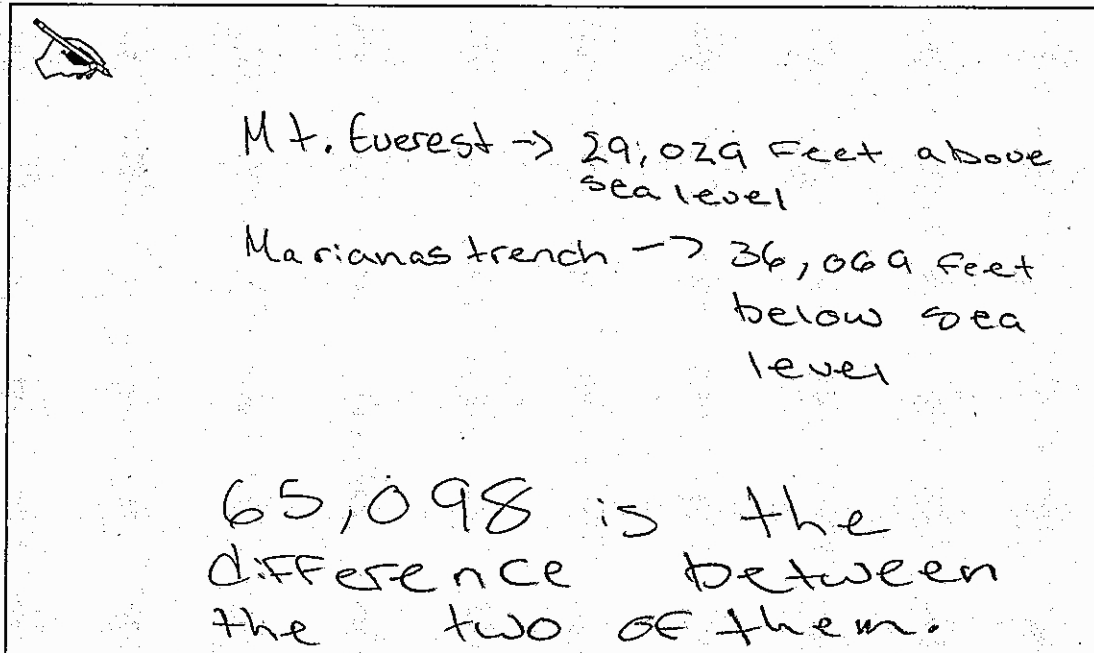 Mt. Everest -> 29,029 feet above
sea level
Marianas trench -> 36,069 feet
below sea
level
65,098 is the
difference between
the two of them.